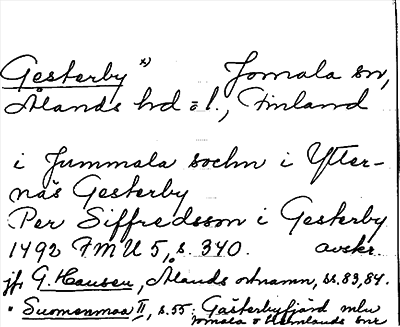 Gesterby *) Jomala sn,
Ålands hd o l., Finland
i Jummala sochn i Ytter-
näs Gesterby
Per Siffredsson i Gesterby
1492 FMU 5, s. 340. avskr.
jfr G. Hausen, Ålands ortnamn, ss. 83, 84.
* Suomenmaa II, s. 55: Gästerbyfjärd mlw
Jomala o Hamlands snr